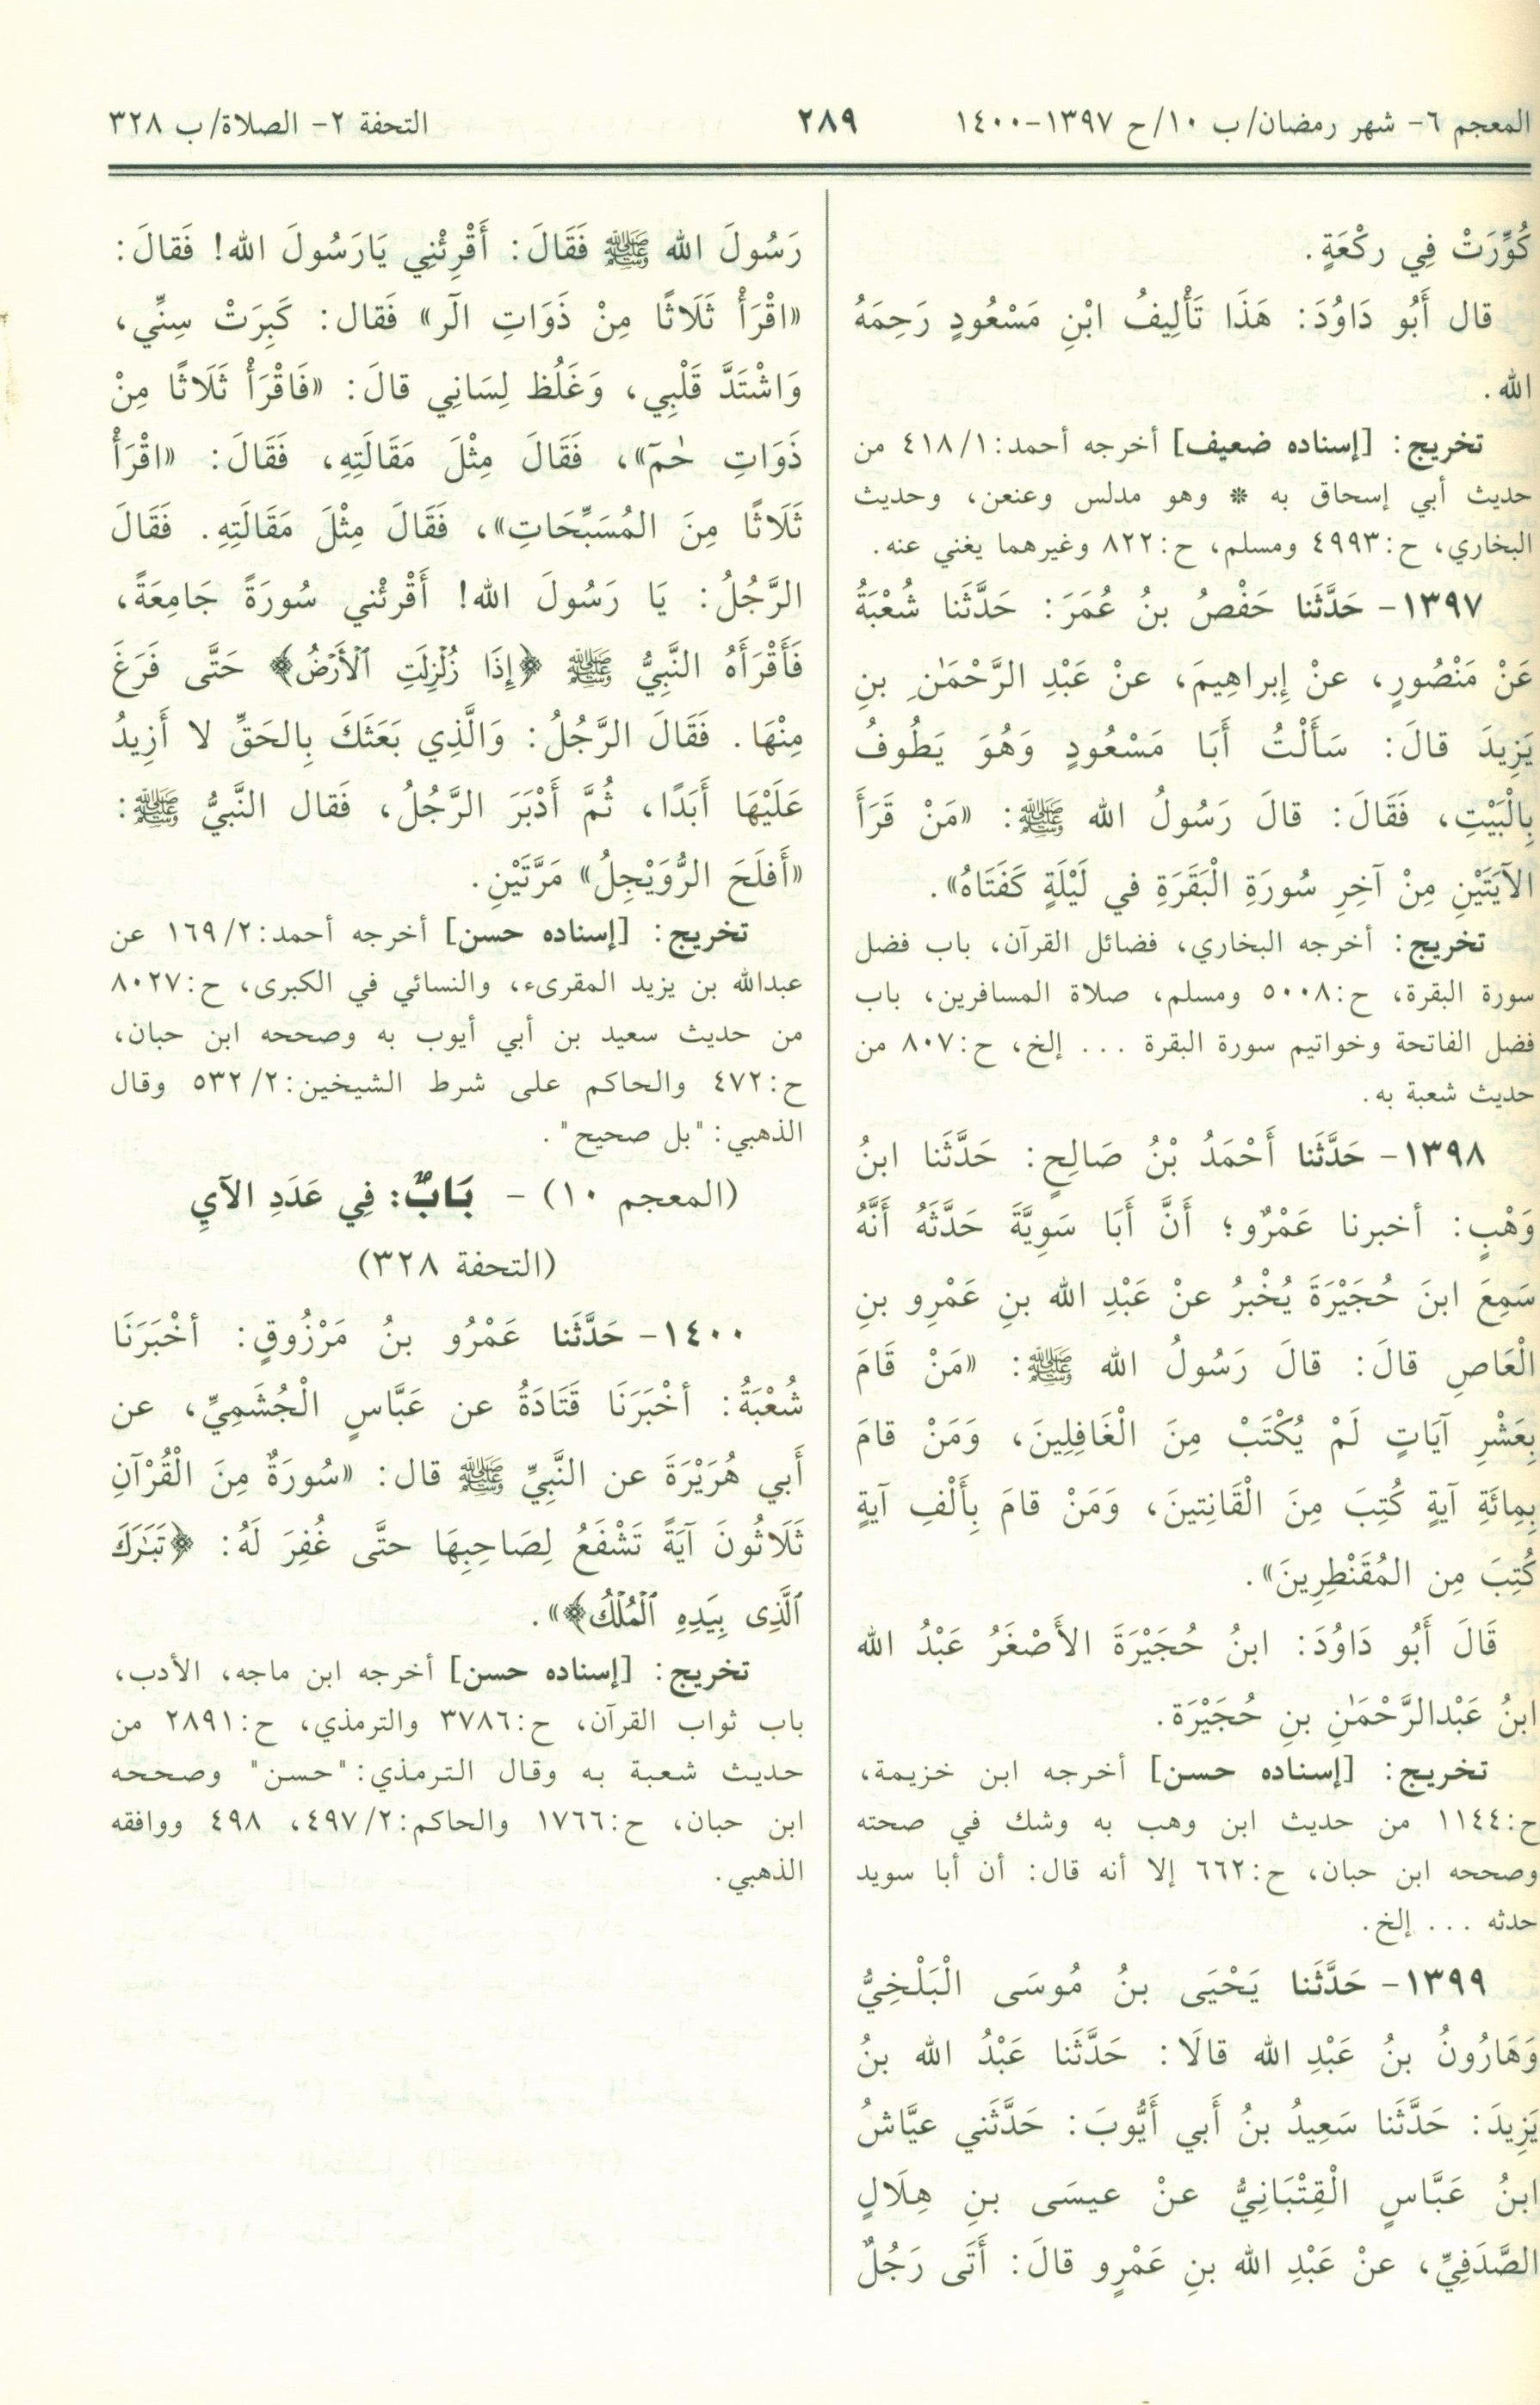 المعجم ٦- شهر رمضان/ ب ١٠/ ح ١٣٩٧-١٤٠٠
٢٨٩
التحفة ٢- الصلاة/ ب ٣٢٨
كُوِّرَتْ فِي ركْعَةٍ.
قال أَبُو دَاوُدَ: هَذَا تَأْلِيفُ ابْنِ مَسْعُودٍ رَحِمَهُ
الله.
تخريج: [إسناده ضعيف] أخرجه أحمد:١/ ٤١٨ من
حديث أبي إسحاق به * وهو مدلس وعنعن، وحديث
البخاري، ح:٤٩٩٣ ومسلم، ح:٨٢٢ وغيرهما يغني عنه.
١٣٩٧- حَدَّثَنا حَفْصُ بنُ عُمَرَ: حَدَّثَنا شُعْبَةُ
عَنْ مَنْصُورٍ، عنْ إِبراهِيمَ، عنْ عَبْدِ الرَّحْمَنِ بنِ
يَزِيدَ قالَ: سَأَلْتُ أَبَا مَسْعُودٍ وَهُوَ يَطُوفُ
بِالْبَيْتِ، فَقَالَ: قالَ رَسُولُ الله ﷺ: «مَنْ قَرَأَ
الآيَتَيْنِ مِنْ آخِرِ سُورَةِ الْبَقَرَةِ في لَيْلَةٍ كَفَتَاهُ».
تخريج: أخرجه البخاري، فضائل القرآن، باب فضل
سورة البقرة، ح:٥٠٠٨ ومسلم، صلاة المسافرين، باب
فضل الفاتحة وخواتيم سورة البقرة ... إلخ، ح:٨٠٧ من
حديث شعبة به.
١٣٩٨- حَدَّثَنا أَحْمَدُ بْنُ صَالِحٍ: حَدَّثَنا ابنُ
وَهْبٍ: أخبرنا عَمْرٌو؛ أَنَّ أَبَا سَوِيَّةَ حَدَّثَهُ أَنَّهُ
سَمِعَ ابنَ حُجَيْرَةَ يُخْبِرُ عنْ عَبْدِ الله بنِ عَمْرِو بنِ
الْعَاصِ قالَ: قالَ رَسُولُ الله ﷺ: «مَنْ قَامَ
بِعَشْرِ آيَاتٍ لَمْ يُكْتَبْ مِنَ الْغَافِلِينَ، وَمَنْ قامَ
بِمِائَةِ آيةٍ كُتِبَ مِنَ الْقَانِتينَ، وَمَنْ قامَ بِأَلْفِ آيةٍ
كُتِبَ مِن المُقَنْطِرِينَ».
قَالَ أَبُو دَاوُدَ: ابنُ حُجَيْرَةَ الأَصْغَرُ عَبْدُ الله
ابنُ عَبْدالرَّحْمَنِ بنِ حُجَيْرَة.
تخريج: [إسناده حسن] أخرجه ابن خزيمة،
ح:١١٤٤ من حديث ابن وهب به وشك في صحته
وصححه ابن حبان، ح:٦٦٢ إلا أنه قال: أن أبا سويد
حدثه ... إلخ.
١٣٩٩- حَدَّثَنا يَحْيَى بنُ مُوسَى الْبَلْخِيُّ
وَهَارُونُ بنُ عَبْدِ الله قالَا: حَدَّثَنا عَبْدُ الله بنُ
يَزِيدَ: حَدَّثَنا سَعِيدُ بنُ أَبي أَيُّوبَ: حَدَّثَني عيَّاشُ
ابنُ عَبَّاسٍ الْقِتْبَانِيُّ عنْ عيسَى بنِ هِلَالٍ
الصَّدَفِيِّ، عنْ عَبْدِ الله بنِ عَمْرٍو قالَ: أَتَى رَجُلٌ
رَسُولَ الله ﷺ فَقَالَ: أَقْرِئْنِي يَارَسُولَ الله! فَقالَ:
«اقْرَأْ ثَلَاثًا مِنْ ذَوَاتِ الٓر» فَقال: كَبِرَتْ سِنِّي،
وَاشْتَدَّ قَلْبِي، وَغَلُظ لِسَانِي قالَ: «فَاقْرَأْ ثَلَاثًا مِنْ
ذَوَاتِ حٰمٓ»، فَقَالَ مِثْلَ مَقَالَتِهِ، فَقَالَ: «اقْرَأْ
ثَلَاثًا مِنَ المُسَبِّحَاتِ»، فَقَالَ مِثْلَ مَقَالَتِهِ. فَقَالَ
الرَّجُلُ: يَا رَسُولَ الله! أَقْرئْني سُورَةً جَامِعَةً،
فَأَقْرَأَهُ النَّبِيُّ ﷺ ﴿إِذَا زُلْزِلَتِ ٱلْأَرْضُ﴾ حَتَّى فَرَغَ
مِنْهَا. فَقَالَ الرَّجُلُ: وَالَّذِي بَعَثَكَ بِالحَقِّ لا أَزِيدُ
عَلَيْهَا أَبَدًا، ثُمَّ أَدْبَرَ الرَّجُلُ، فَقال النَّبيُّ ﷺ:
«أَفلَحَ الرُّوَيْجِلُ» مَرَّتَيْنِ.
تخريج: [إسناده حسن] أخرجه أحمد:٢/ ١٦٩ عن
عبدالله بن يزيد المقرىء، والنسائي في الكبرى، ح:٨٠٢٧
من حديث سعيد بن أبي أيوب به وصححه ابن حبان،
ح:٤٧٢ والحاكم على شرط الشيخين:٢/ ٥٣٢ وقال
الذهبي:"بل صحيح".
(المعجم ١٠) - بَابٌ: فِي عَدَدِ الآيِ
(التحفة ٣٢٨)
١٤٠٠- حَدَّثَنا عَمْرُو بنُ مَرْزُوقٍ: أخْبَرَنَا
شُعْبَةُ: أخْبَرَنَا قَتَادَةُ عن عَبَّاسٍ الْجُشَمِيِّ، عن
أَبي هُرَيْرَةَ عن النَّبِيِّ ﷺ قال: «سُورَةٌ مِنَ الْقُرْآنِ
ثَلَاثُونَ آيَةً تَشْفَعُ لِصَاحِبِهَا حتَّى غُفِرَ لَهُ: ﴿تَبَٰرَكَ
ٱلَّذِى بِيَدِهِ ٱلْمُلْكُ﴾».
تخريج: [إسناده حسن] أخرجه ابن ماجه، الأدب،
باب ثواب القرآن، ح:٣٧٨٦ والترمذي، ح:٢٨٩١ من
حديث شعبة به وقال الترمذي:"حسن" وصححه
ابن حبان، ح:١٧٦٦ والحاكم:٢/ ٤٩٧، ٤٩٨ ووافقه
الذهبي.